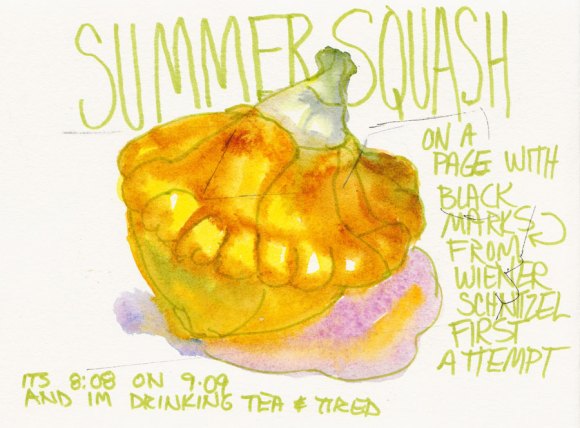 SUMMER SQUASH
ON A
PAGE WITH
BLACK
MARKS
FROM
WIENER
SCHNITZEL
FIRST
ATTEMPT
ITS 8:08 ON 9.09
AND IM DRINKING TEA & TIRED